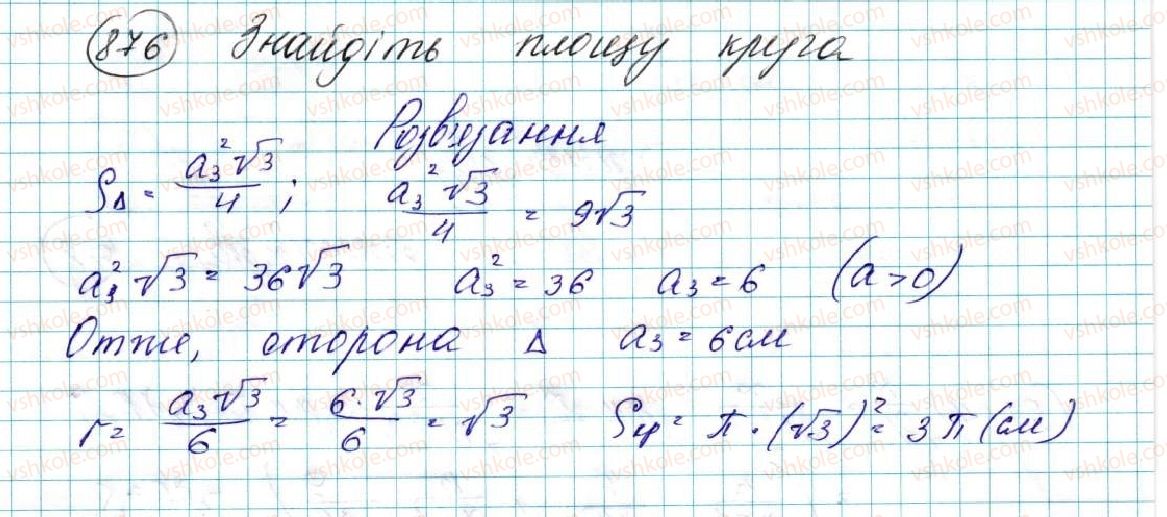 876 Знайдіть площу круга
Розв'язання
S△ = a₃²√3/4 ; a₃²√3/4 = 9√3
a₃²√3 = 36√3 a₃² = 36 a₃ = 6 (a>0)
Отже, сторона △ a₃ = 6 см
r = a₃√3/6 = 6·√3/6 = √3 Sкр = π·(√3)² = 3π (см)